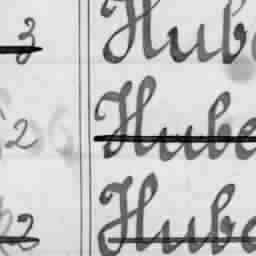 3 Hube
2 Hube
2 Hube